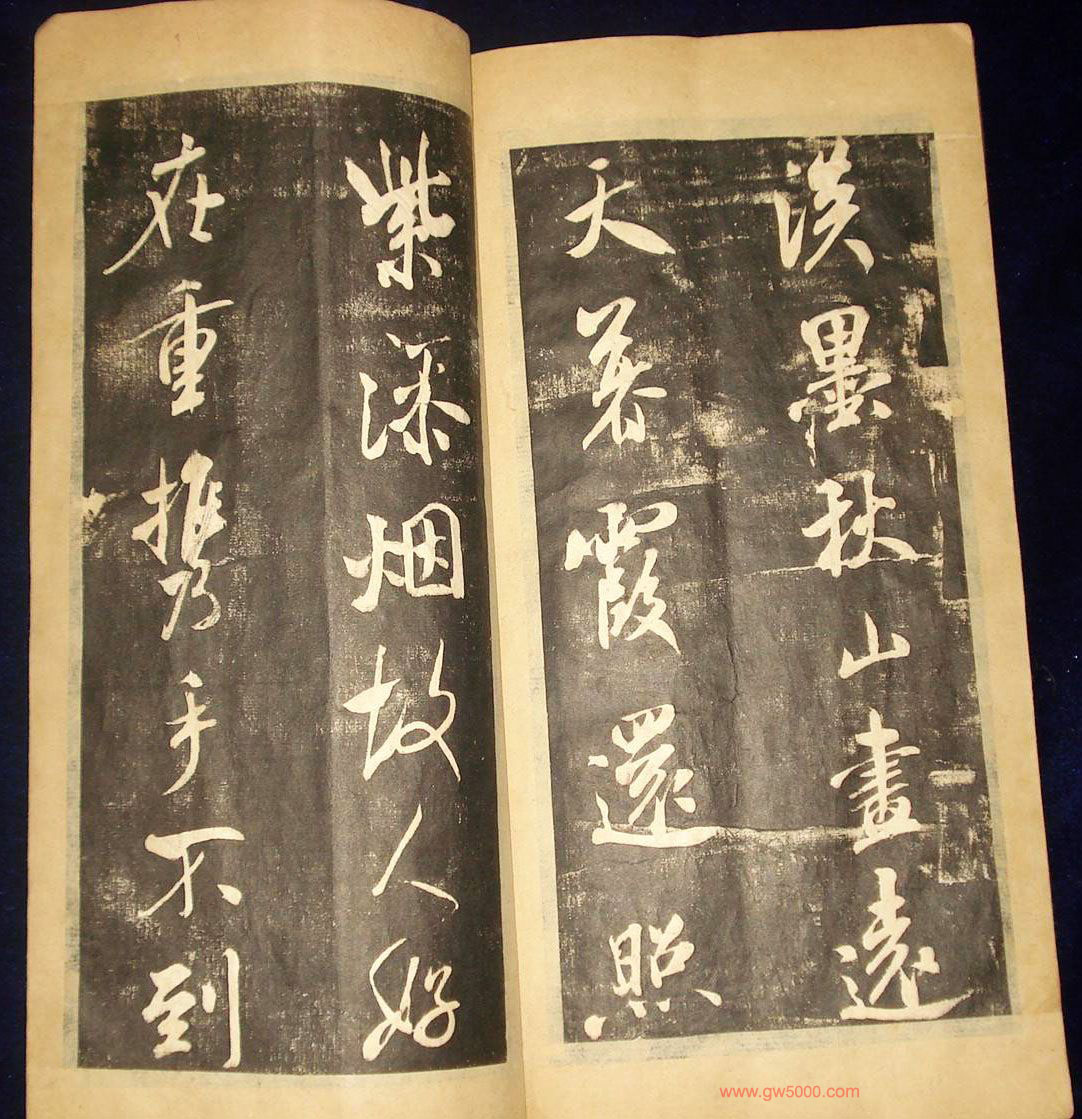 淡墨秋山畫遠
天暮霞還照
紫添烟故人好
在重携手不到
www.gw5000.com